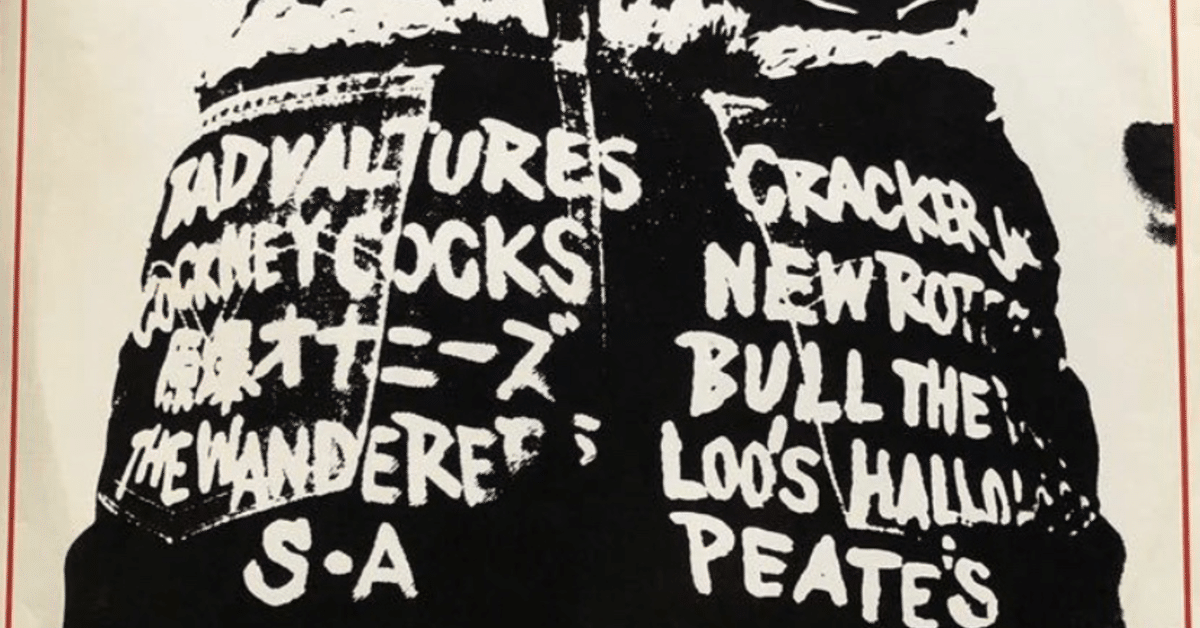 BAD VALTURES
COCKNEY COCKS
原爆オナニーズ
THE WANDERERS
S・A
CRACKER
NEW
BULL THE
LOO'S
PEATE'S